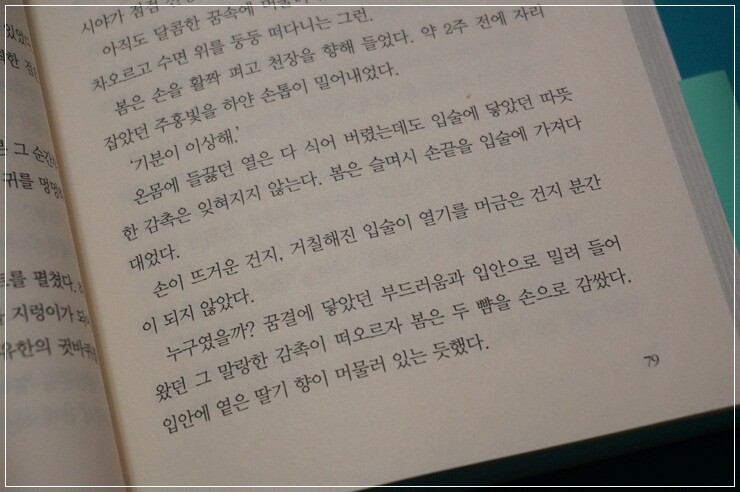 있었
적한 장
그 순간
귀를 멍멍
를 펼쳤다.
지렁이가
유한의 귓바퀴
시야가 점점
아직도 달콤한 꿈속에
차오르고 수면 위를 둥둥 떠다니는 그런.
봄은 손을 활짝 펴고 천장을 향해 들었다. 약 2주 전에 자리
잡았던 주홍빛을 하얀 손톱이 밀어내었다.
‘기분이 이상해.’
온몸에 들끓던 열은 다 식어 버렸는데도 입술에 닿았던 따뜻
한 감촉은 잊혀지지 않는다. 봄은 슬며시 손끝을 입술에 가져다
대었다.
손이 뜨거운 건지, 거칠해진 입술이 열기를 머금은 건지 분간
이 되지 않았다.
누구였을까? 꿈결에 닿았던 부드러움과 입안으로 밀려 들어
왔던 그 말랑한 감촉이 떠오르자 봄은 두 뺨을 손으로 감쌌다.
입안에 옅은 딸기 향이 머물러 있는 듯했다.
79